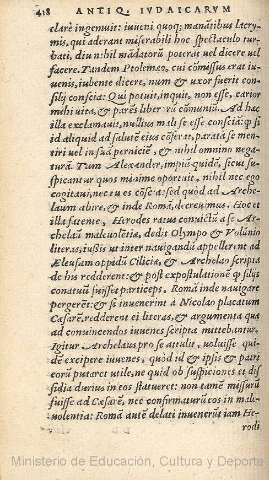 418 ANTIQ. IVDAICARVM
clarè ingenuit: iuueni quoq; manātibus lacry-
mis, qui aderant miserabili hoc spectaculo tur-
bati, diu nihil mādatorū poterāt uel dicere uel
facere. Tandem Ptolemæo, cui cōmissus erat iu-
uenis, iubente dicere, num & uxor fuerit con-
silij conscia: Qui potuit, inquit, non esse, charior
mihi uita, & pares liberi cōmunis? Ad hæc
illa exclamauit, nullius mali se esse consciā: q si
id aliquid ad salutē eius cōferat, paratā se men-
tiri uel in suā perniciē, & nihil omnino nega-
turā. Tum Alexander, impiū quidē, sicut su-
spicantur quos minime oportuit, nihil nec ego
cogitaui, nec tu es cōscia: sed quòd ad Arche-
laum abire, & inde Romā, decreuimus. Hoc et
illa fatente, Herodes ratus conuictū à se Ar-
chelai maleuolētiā, dedit Olympo & Volūnio
literas, iussis ut inter nauigandū appellerent ad
Æleusam oppidū Ciliciæ, & Archelao scripta
de his redderent: & post expostulationē q filijs
conatuū fuisset particeps, Romā inde nauigare
pergerēt: & si inuenerint à Nicolao placatum
Cæsarē, redderent ei literas, & argumenta quæ
ad conuincendos iuuenes scripta mittebantur.
Igitur Archelaus pro se attulit, uoluisse qui-
dē excipere iuuenes, quòd id & ipsis & patri
eorū putaret utile, ne quid ob suspiciones et dis-
sidia durius in eos statueret: non tamē missurū
fuisse ad Cæsarē, nec confirmaturū eos in male-
uolentia: Romā autē delati inuenerūt iam He-
rodi
Ministerio de Educación, Cultura y Deporte